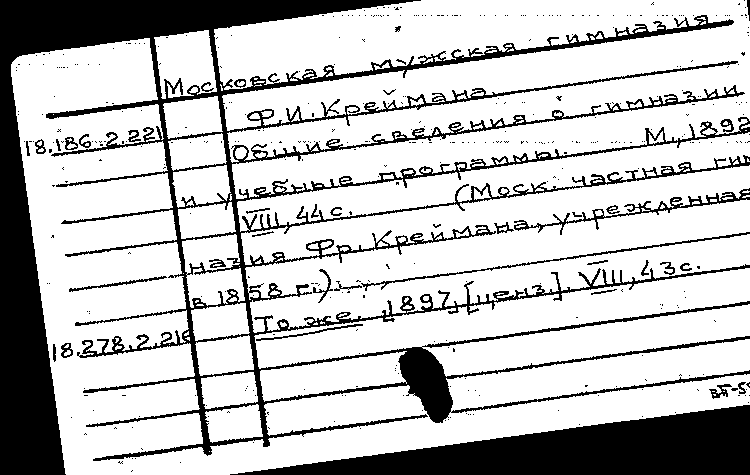 Московская мужская гимназия
Ф.И. Креймана.
18.186.2.221
Общие сведения о гимназии
и учебные программы. М., 1892
VIII, 44 с. (Моск. частная гим
назия Фр. Креймана, учрежденная
в 1858 г.)
18.278.2.216 То же. 1897, [ценз.]. VIII, 43 с.